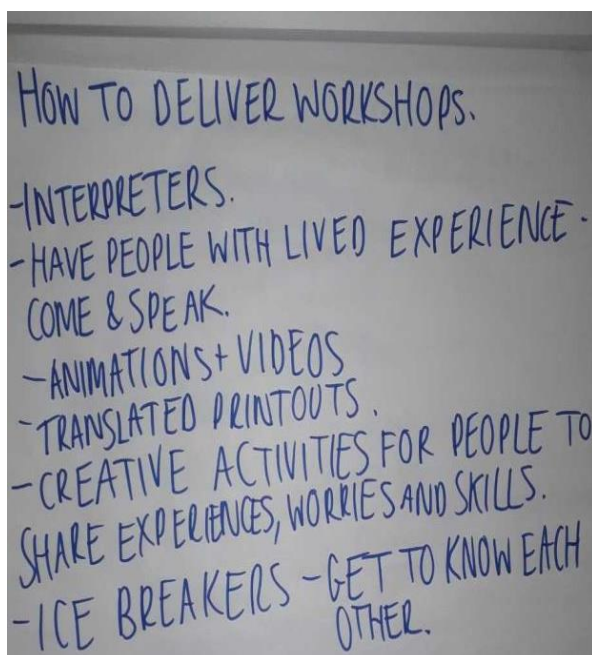 HOW TO DELIVER WORKSHOPS.
-INTERPRETERS.
-HAVE PEOPLE WITH LIVED EXPERIENCE -
COME & SPEAK.
-ANIMATIONS + VIDEOS
-TRANSLATED PRINTOUTS.
-CREATIVE ACTIVITIES FOR PEOPLE TO
SHARE EXPERIENCES, WORRIES AND SKILLS.
-ICE BREAKERS - GET TO KNOW EACH
OTHER.